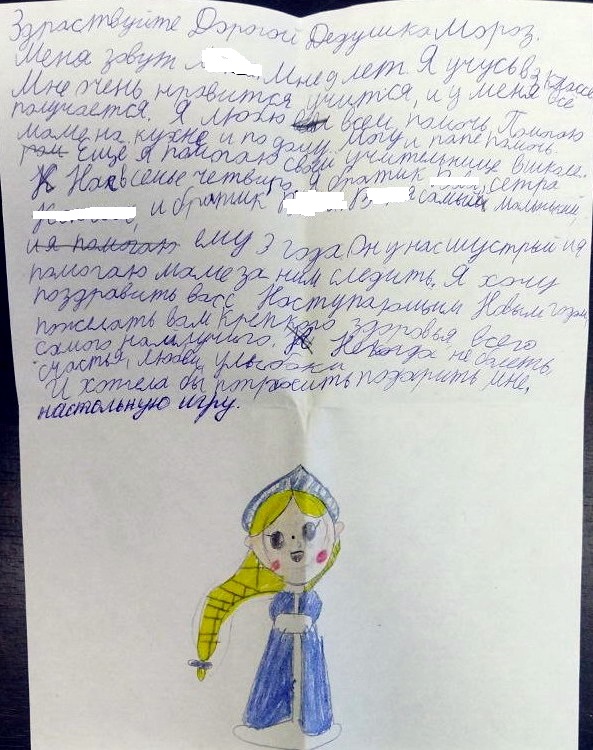 Здраствуйте Дорогой Дедушка Мороз.
Меня зовут Мне 9 лет. Я учусь в 3 классе
Мне очень нравится учится, и у меня все
получается. Я люблю всем помочь. Помогаю
маме на кухне и по дому. Могу и папе помочь.
Еще я помогаю своей учительнице в школе.
Нас в семье четверо, я братик сетра
и братик самый маленький,
и я помогаю ему 3 года Он у нас шустрый и я
помогаю маме за ним следить. Я хочу
поздравить вас с Наступающим Новым годом,
пожелать вам крепкого здоровья, всего
самого наилучшего. Некогда не болеть,
счастья, любви, улыбок
И хотела бы попросить подарить мне,
настольную игру.